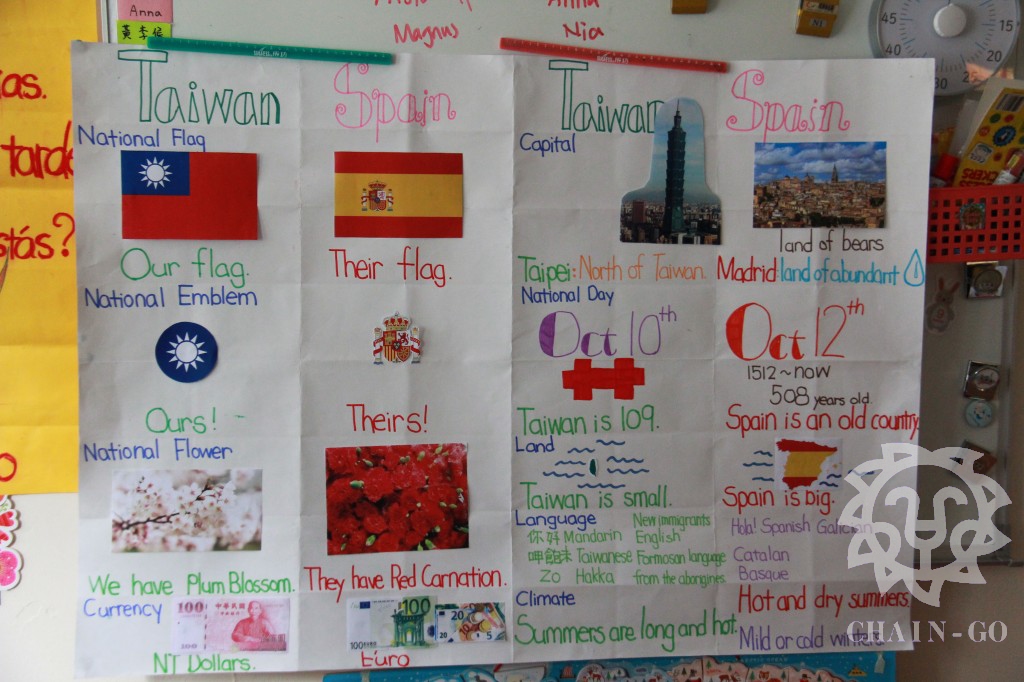 Anna
黃李侯
Magnus
Anna
Nia
as.
tarde
stás?
Taiwan
Spain
National Flag
Our flag.
Their flag.
National Emblem
Ours!
Theirs!
National Flower
We have Plum Blossom.
They have Red Carnation.
Currency
100
100
100
20
5
NT Dollars.
Euro
Taiwan
Spain
Capital
land of bears
Taipei: North of Taiwan.
Madrid: land of abundant
National Day
Oct 10th
Oct 12th
1512~now
508 years old.
Taiwan is 109.
Spain is an old country.
Land
Taiwan is small.
Spain is big.
Language
你好 Mandarin
呷飽未 Taiwanese
Zo Hakka
New immigrants
English
Formosan language
from the aborigines
Hola! Spanish Galician
Catalan
Basque
Climate
Summers are long and hot.
Hot and dry summers.
Mild or cold winters.
CHAIN-GO